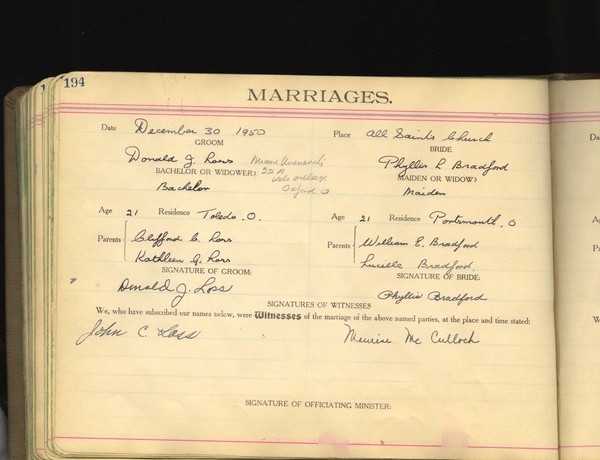 194
MARRIAGES.
Date December 30 1950 Place All Saints Church
GROOM BRIDE
Donald J. Loss Miami University Phyllis L Bradford
BACHELOR OR WIDOWER? MAIDEN OR WIDOW?
Bachelor Oxford O Maiden
Age 21 Residence Toledo, O. Age 21 Residence Portsmouth, O
Parents Clifford C. Loss Parents William E. Bradford
Kathleen G. Loss Lucille Bradford
SIGNATURE OF GROOM: SIGNATURE OF BRIDE:
Donald J. Loss Phyllis Bradford
SIGNATURES OF WITNESSES
We, who have subscribed our names below, were Witnesses of the marriage of the above named parties, at the place and time stated:
John C. Loss Maurine Mc Culloch
SIGNATURE OF OFFICIATING MINISTER: